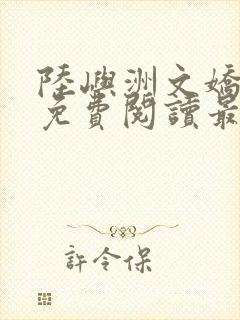 陸嶼洲文嬌
免費閱讀最
許令保